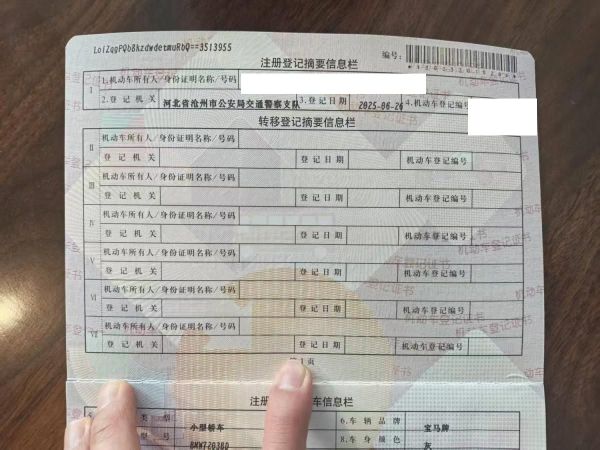 LolZqgPQb8kzdwdetmuRbQ==3513955
编号:
注册登记摘要信息栏
I
1.机动车所有人/身份证明名称/号码
2.登记机关 河北省沧州市公安局交通警察支队 3.登记日期 2025-06-26 4.机动车登记编号
转移登记摘要信息栏
II 机动车所有人/身份证明名称/号码
登记机关 登记日期 机动车登记编号
III 机动车所有人/身份证明名称/号码
登记机关 登记日期 机动车登记编号
IV 机动车所有人/身份证明名称/号码
登记机关 登记日期 机动车登记编号
V 机动车所有人/身份证明名称/号码
登记机关 登记日期 机动车登记编号
VI 机动车所有人/身份证明名称/号码
登记机关 登记日期 机动车登记编号
VII 机动车所有人/身份证明名称/号码
登记机关 登记日期 机动车登记编号
第1页
注册 车信息栏
5. 类型 小型轿车 6.车辆品牌 宝马牌
型号 8.车身颜色 灰